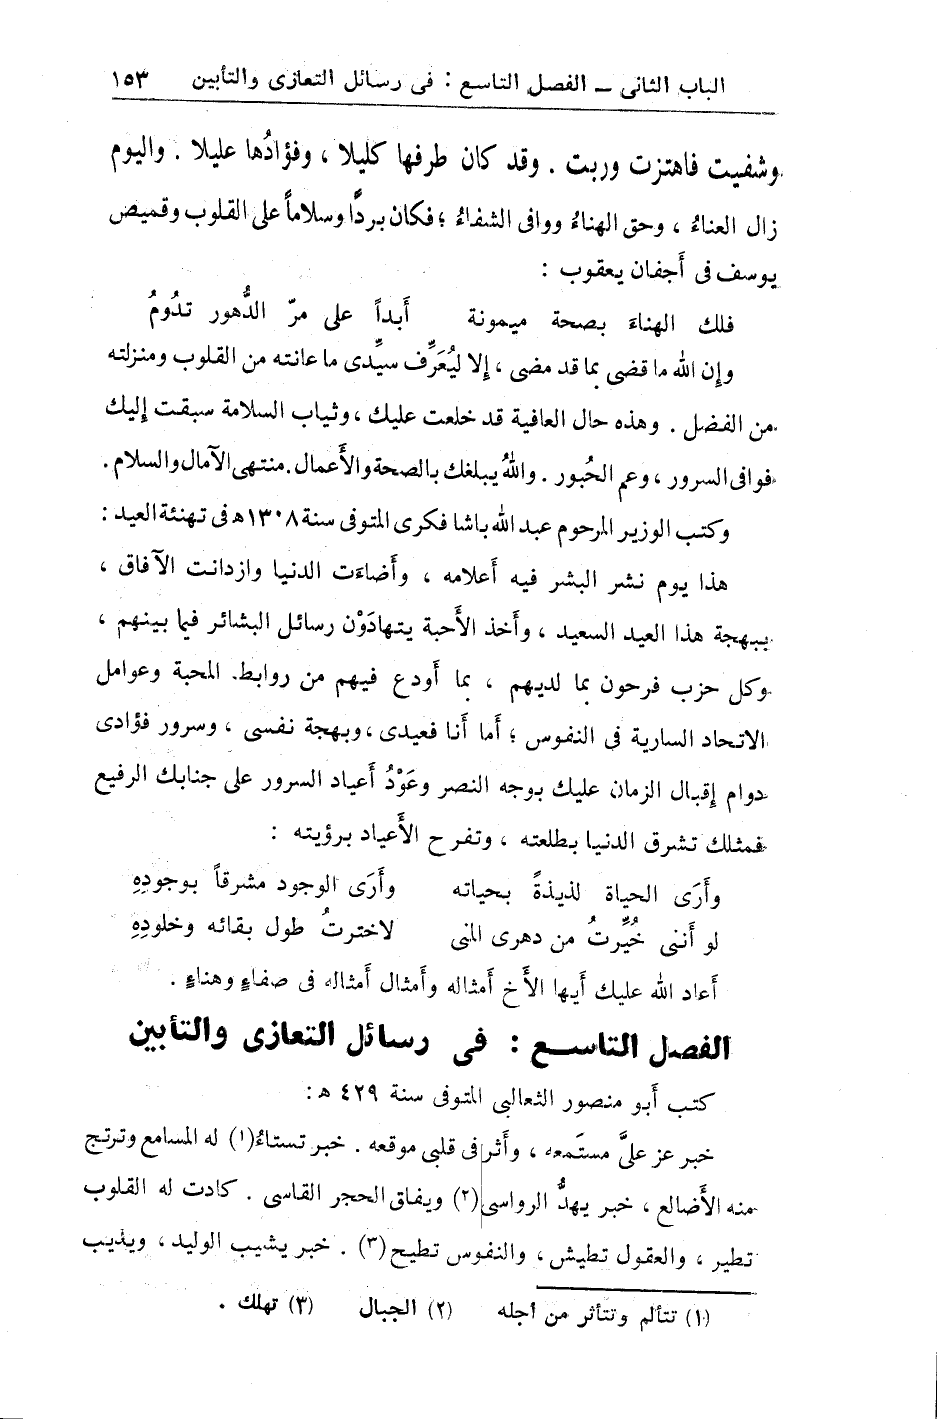 الباب الثانى – الفصل التاسع : فى رسائل التعازى والتأبين ١٥٣
وشفيت فاهتزت وربت . وقد كان طرفها كليلا ، وفؤادُها عليلا . واليوم
زال العناءُ ، وحق الهناءُ ووافى الشفاءُ ؛ فكان بردًّا وسلاماً على القلوب وقميص
يوسف فى أَجفان يعقوب :
فلك الهناءَ بصحة ميمونة أَبداً على مرّ الدُّهور تدُومُ
وإن الله ما قضى بما قد مضى ، إلا ليُعَرِّف سيِّدى ما عانته من القلوب ومنزلته
من الفضل . وهذه حال العافية قد خلعت عليك ، وثياب السلامة سبقت إليك
فوافى السرور ، وعم الحُبور . واللهُ يبلغك بالصحة والأَعمال . منتهى الآمال والسلام .
وكتب الوزير المرحوم عبد الله باشا فكرى المتوفى سنة ١٣٠٨ ه فى تهنئة العيد :
هذا يوم نشر البشر فيه أَعلامه ، وأَضاءَت الدنيا وازدانت الآفاق ،
ببهجة هذا العيد السعيد ، وأَخذ الأَحبة يتهادَوْن رسائل البشائر فيما بينهم ،
وكل حزب فرحون بما لديهم ، بما أَودع فيهم من روابط المحبة وعوامل
الاتحاد السارية فى النفوس ؛ أَما أَنا فعيدى ، وبهجة نفسى ، وسرور فؤادى
دوام إقبال الزمان عليك بوجه النصر وعَوْدُ أَعياد السرور على جنابك الرفيع
فمثلك تشرق الدنيا بطلعته ، وتفرح الأَعياد برؤيته :
وأَرَى الحياة لذيذةً بحياته وأَرَى الوجود مشرقاً بوجودِهِ
لو أَننى خُيِّرتُ من دهرى المنى لاخترتُ طول بقائه وخلودِهِ
أَعاد الله عليك أَيها الأَخ أَمثاله وأَمثال أَمثاله فى صفاءٍ وهناءٍ .
الفصل التاسع : فى رسائل التعازى والتأبين
كتب أَبو منصور الثعالبى المتوفى سنة ٤٢٩ ه :
خبر عز علىَّ مستَمعه ، وأَثر فى قلبى موقعه . خبر تستاءُ(١) له المسامع وترتج
منه الأَضالع ، خبر يهدُّ الرواسى(٢) ويفلق الحجر القاسى . كادت له القلوب
تطير ، والعقول تطيش ، والنفوس تطيح(٣) . خبر يشيب الوليد ، ويذيب
(١) تتألم وتتأثر من أجله (٢) الجبال (٣) تهلك .